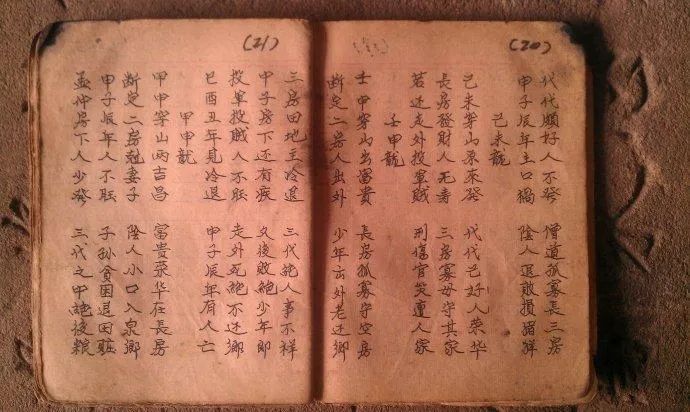 (20)
代代顺好人不發 僧道孤寡長三房
甲子辰年主口禍 陰人退敗損猪牂
己未龍
己未穿山原來發 代代己好人荣华
長房發財人无寿 三房寡母守其家
若还走外投軍贼 刑傷官災連人家
壬甲龍
士甲穿山出富贵 長房孤寡守空房
断定二房人出外 少年出外老还鄉
(21)
三房田地主冷退 三代絶人事不祥
甲子房下还有疾 久後敗絶少年郎
投軍投贼人不旺 走外死絶不还鄉
巳酉丑年見冷退 甲子辰年有人亡
甲甲龍
甲甲穿山两吉昌 富贵荣华在長房
断定二房尅妻子 陰人小口入泉鄉
甲子辰年人不旺 子孙貧困退田莊
孟仲房下人少發 三代之中絶後粮